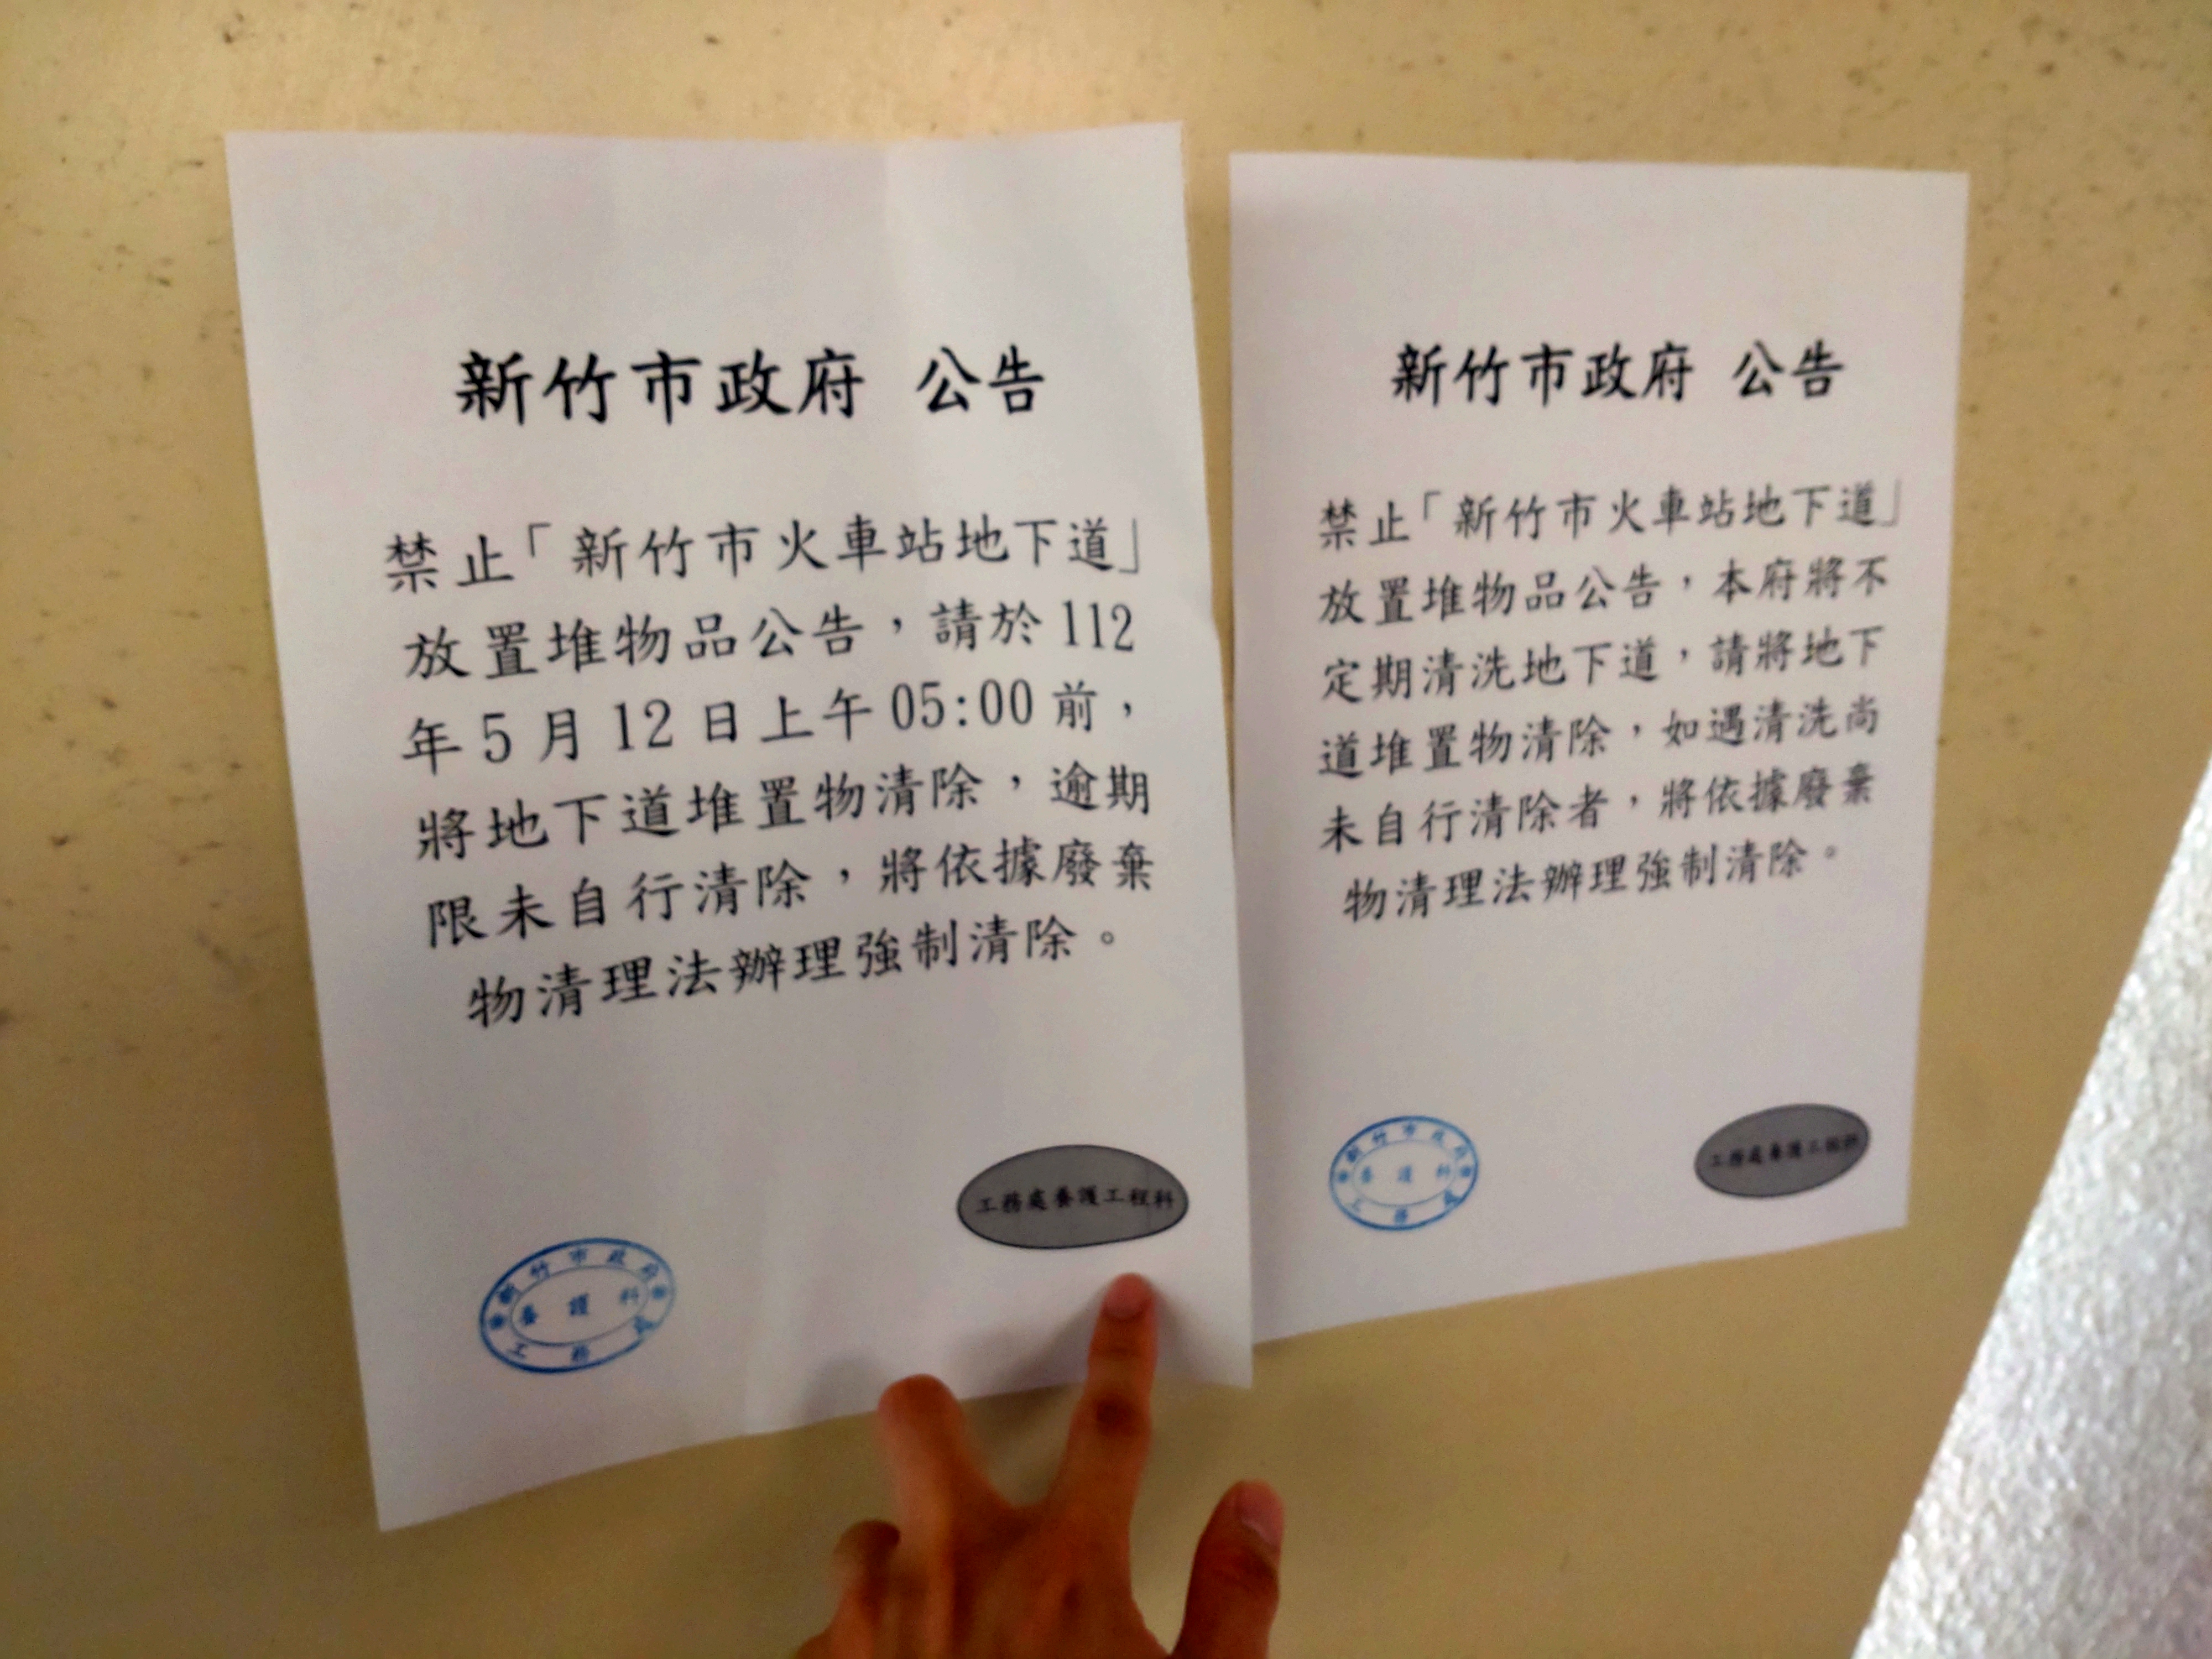 新竹市政府 公告
禁止「新竹市火車站地下道」
放置堆物品公告，請於112
年5月12日上午05:00前，
將地下道堆置物清除，逾期
限未自行清除，將依據廢棄
物清理法辦理強制清除。
工務處養護工程科
新竹市政府
養護科
工務處
新竹市政府 公告
禁止「新竹市火車站地下道」
放置堆物品公告，本府將不
定期清洗地下道，請將地下
道堆置物清除，如遇清洗尚
未自行清除者，將依據廢棄
物清理法辦理強制清除。
新竹市政府
養護科
工務處
工務處養護工程科